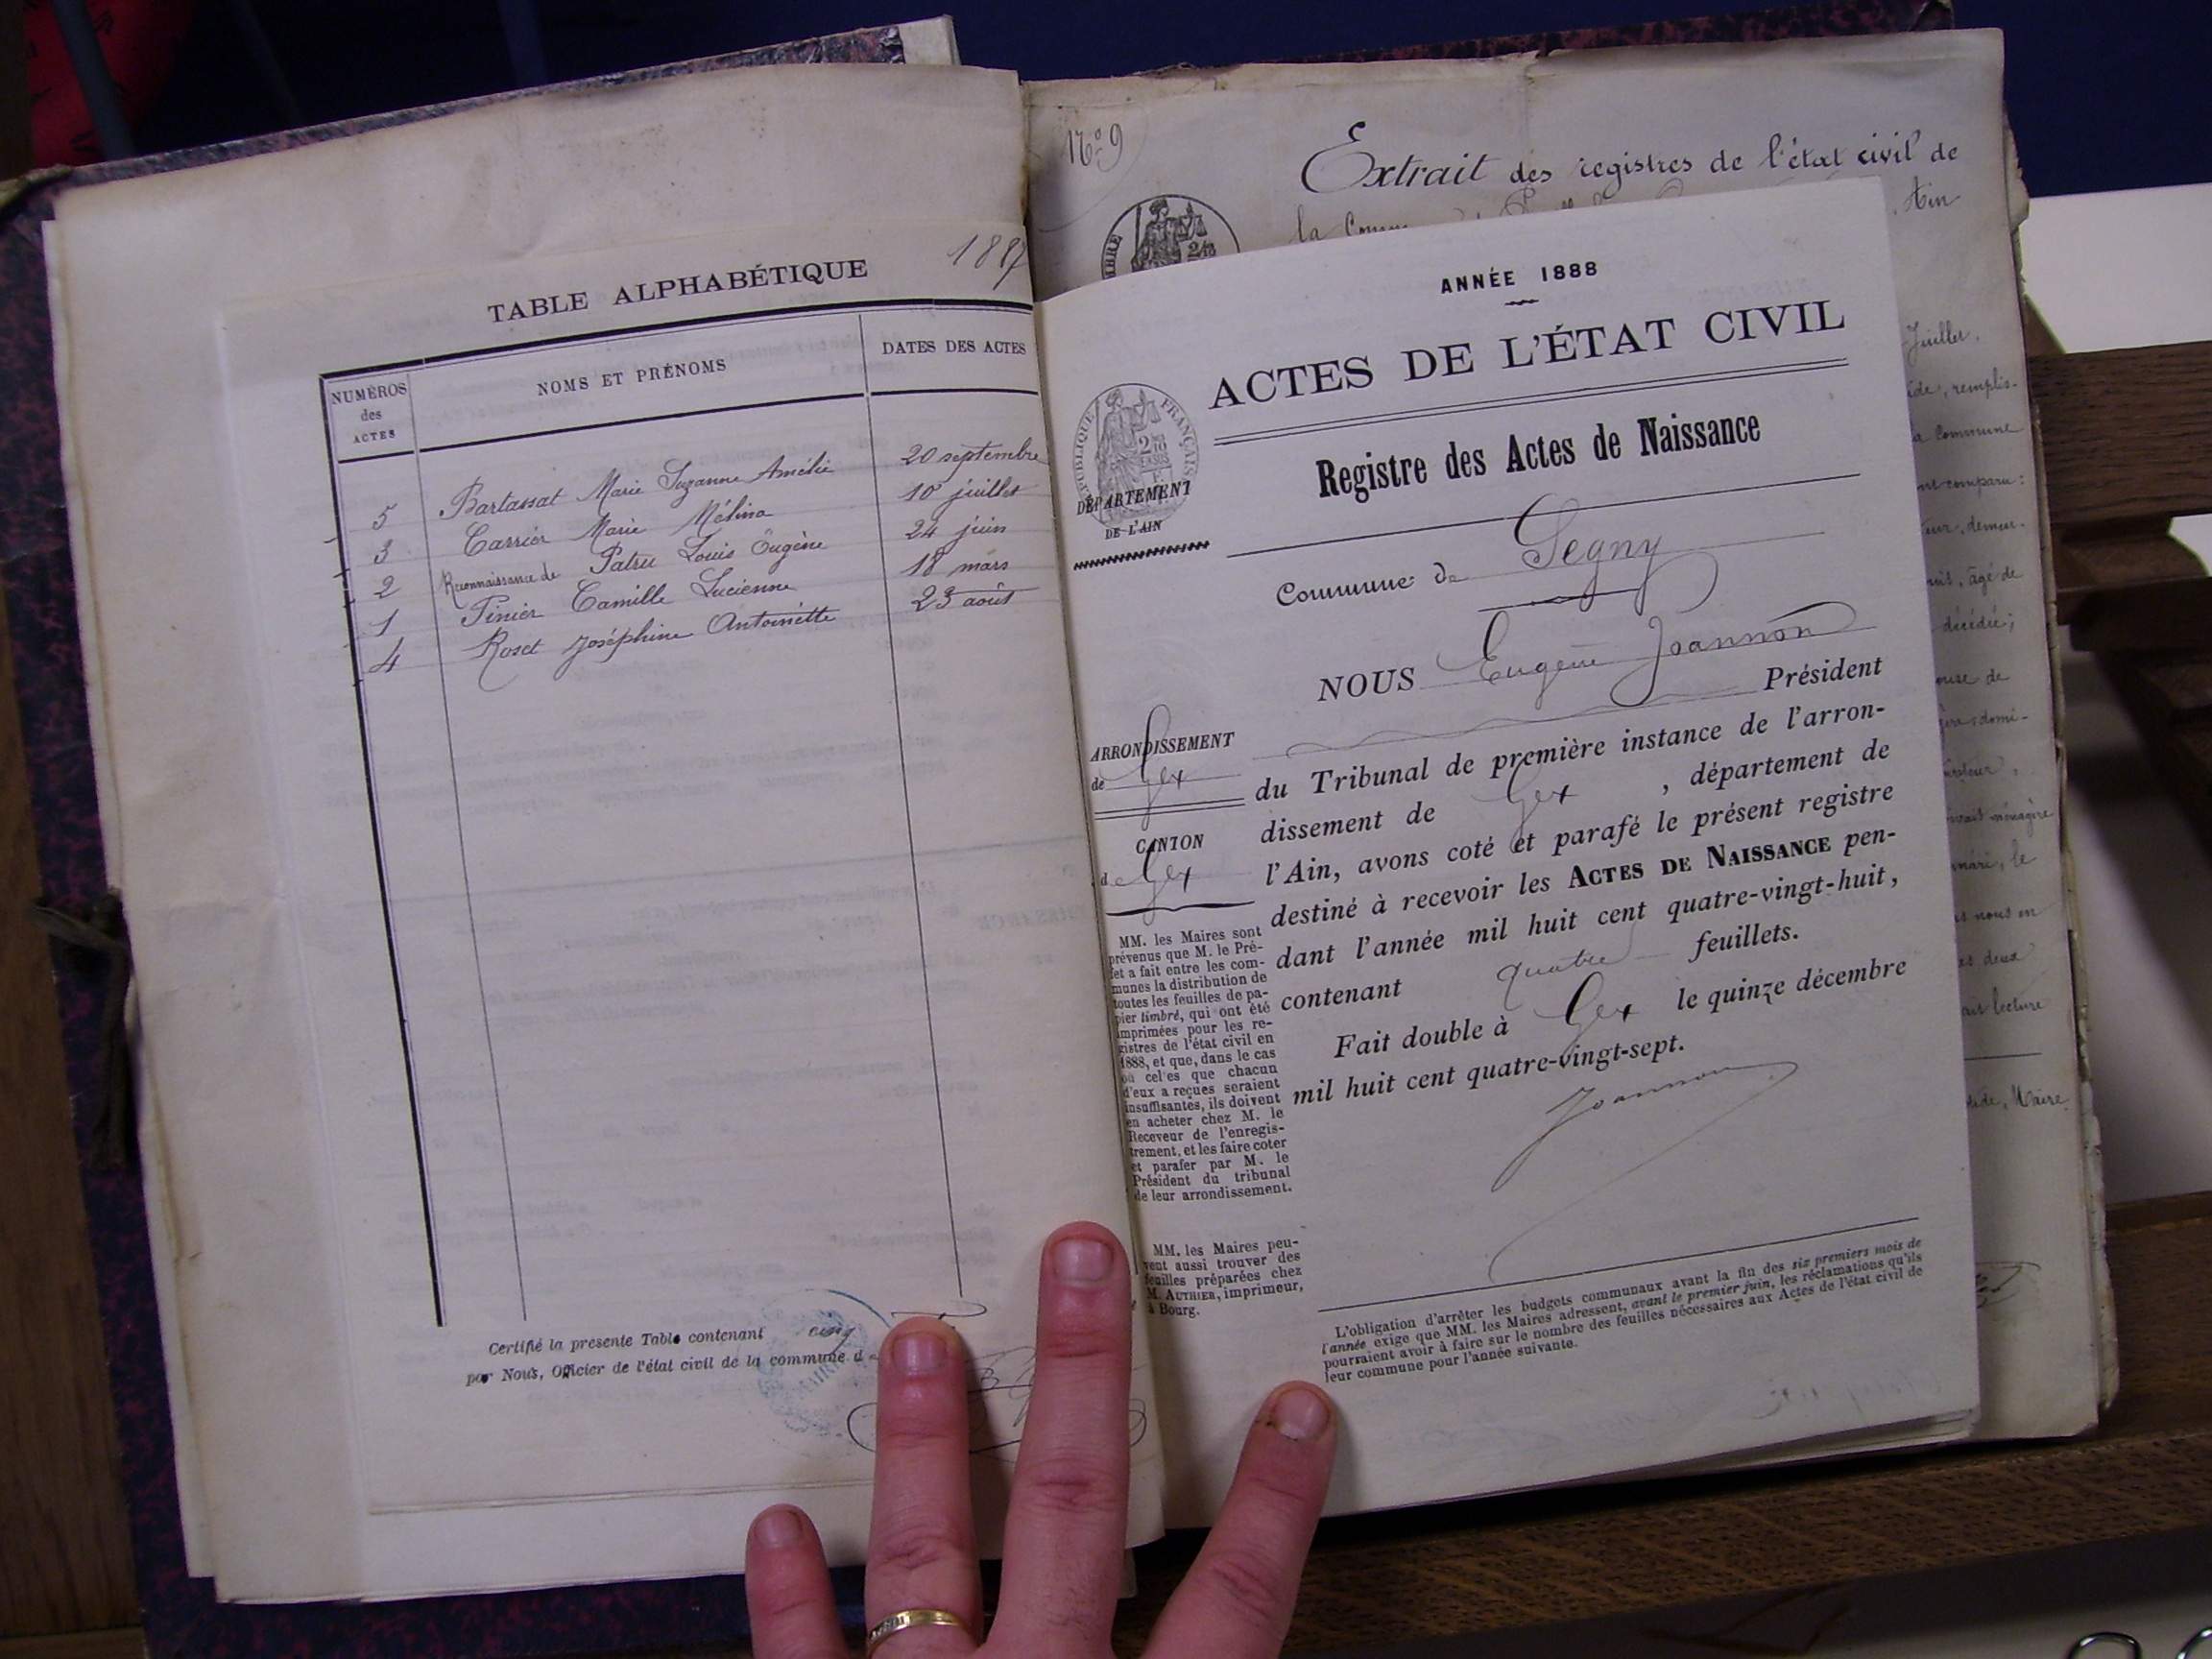 1887
TABLE ALPHABÉTIQUE
NUMÉROS
des
ACTES
NOMS ET PRÉNOMS
DATES DES ACTES
5 Bartassat Marie Suzanne Amélie 20 septembre
3 Carrier Marie Mélina 10 juillet
2 Reconnaissance de Patru Louis Eugène 24 juin
1 Pinier Camille Lucienne 18 mars
4 Roset Joséphine Antoinette 23 août
Certifié la presente Table contenant cinq
par Nous, Officier de l'état civil de la commune d
No 9
Extrait des registres de l'état civil de
la
Ain
ANNÉE 1888
ACTES DE L'ÉTAT CIVIL
RÉPUBLIQUE FRANÇAISE
DÉPARTEMENT
DE L'AIN
Registre des Actes de Naissance
Commune de Segny
NOUS Eugène Joannon
Président
du Tribunal de première instance de l'arron-
dissement de Gex, département de
l'Ain, avons coté et parafé le présent registre
destiné à recevoir les ACTES DE NAISSANCE pen-
dant l'année mil huit cent quatre-vingt-huit,
contenant quatre feuillets.
Fait double à Gex le quinze décembre
mil huit cent quatre-vingt-sept.
Joannon
ARRONDISSEMENT
de Gex
CANTON
de Gex
MM. les Maires sont
prévenus que M. le Pré-
fet a fait entre les com-
munes la distribution de
toutes les feuilles de pa-
pier timbré, qui ont été
imprimées pour les re-
gistres de l'état civil en
1888, et que, dans le cas
où celles que chacun
d'eux a reçues seraient
insuffisantes, ils doivent
en acheter chez M. le
Receveur de l'enregis-
trement, et les faire coter
et parafer par M. le
Président du tribunal
de leur arrondissement.
MM. les Maires peu-
vent aussi trouver des
feuilles préparées chez
M. AUTHIER, imprimeur,
à Bourg.
L'obligation d'arrêter les budgets communaux avant la fin des six premiers mois de
l'année exige que MM. les Maires adressent, avant le premier juin, les réclamations qu'ils
pourraient avoir à faire sur le nombre des feuilles nécessaires aux Actes de l'état civil de
leur commune pour l'année suivante.
Juillet,
remplis-
a commune
comparu:
demeu-
âgé de
décédé;
domi-
ménagère
le
nous en
deux
lecture
Maire